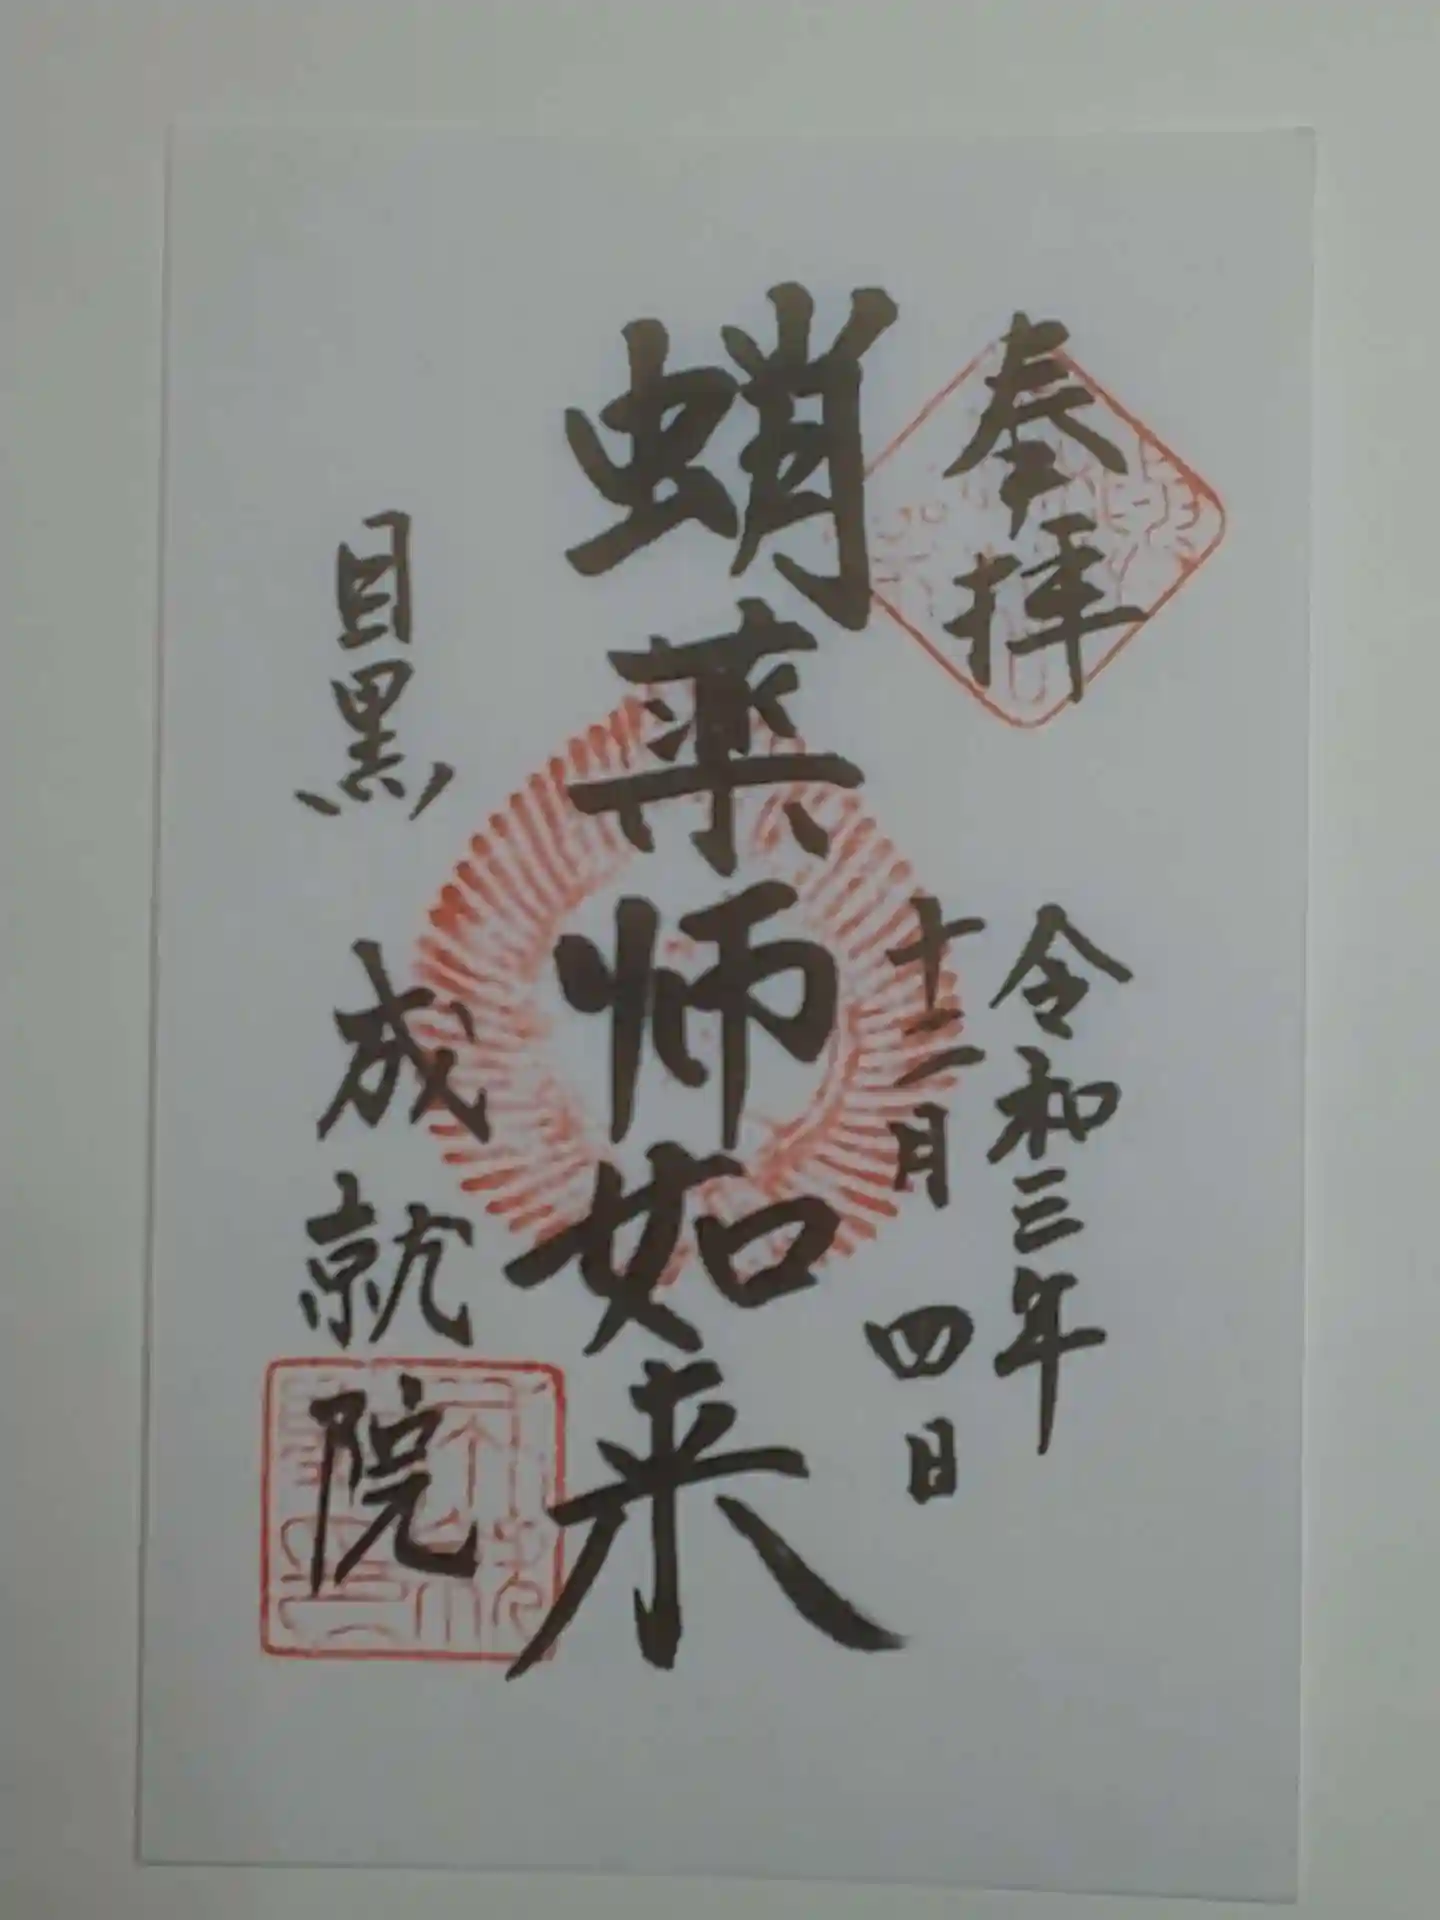 奉拝
令和三年
十二月四日
蛸薬師如来
目黒 成就院